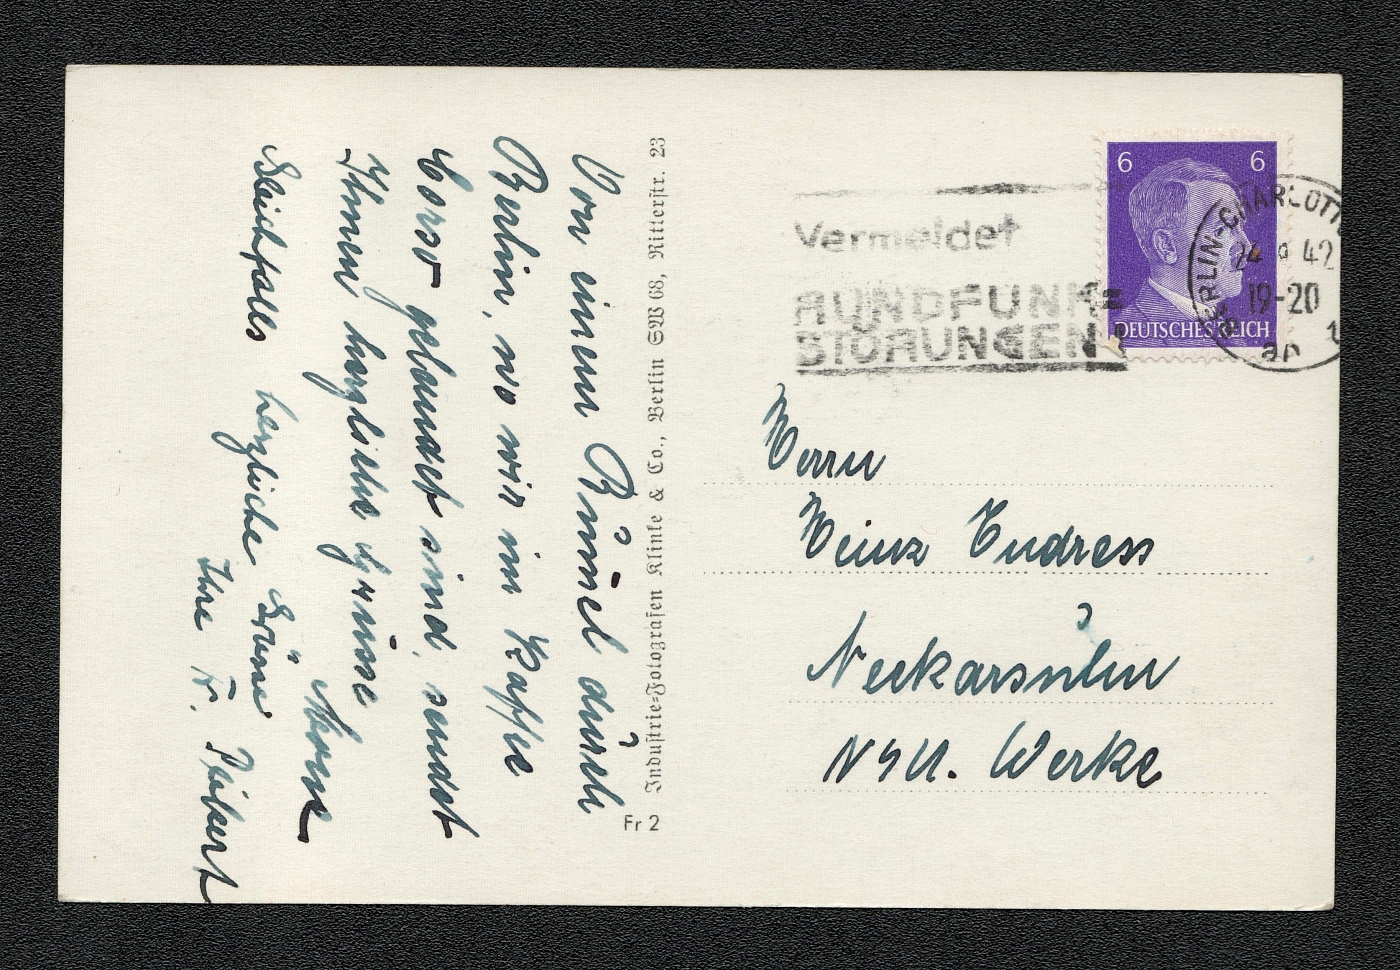 Von einem Bümel durch
Berlin, wo wir im Kaffee
Corso gelandet sind, sendet
Ihnen herzliche Grüsse
Gleichfalls herzliche Grüsse
Ihre Fr.
Industrie-Fotografen Klinke & Co., Berlin SW 68, Ritterstr. 23
Fr 2
Vermeidet
RUNDFUNK=
STÖRUNGEN!
6 6
DEUTSCHES REICH
BERLIN-CHARLOTT
24 9 42
19-20
an 1
Herrn
Heinz Endress
Neckarsulm
NSU. Werke